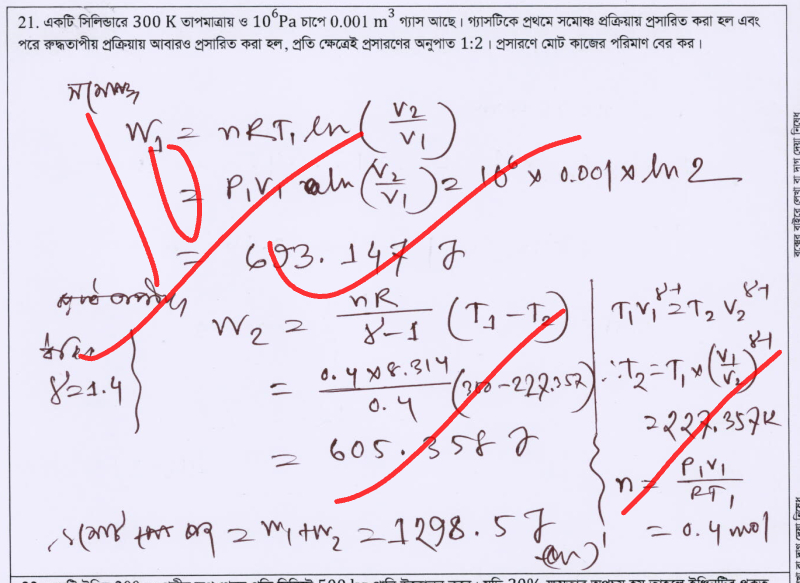 21. একটি সিলিন্ডারে 300 K তাপমাত্রায় ও 10⁶Pa চাপে 0.001 m³ গ্যাস আছে। গ্যাসটিকে প্রথমে সমোষ্ণ প্রক্রিয়ায় প্রসারিত করা হল এবং
পরে রুদ্ধতাপীয় প্রক্রিয়ায় আবারও প্রসারিত করা হল, প্রতি ক্ষেত্রেই প্রসারণের অনুপাত 1:2। প্রসারণে মোট কাজের পরিমাণ বের কর।
সমোষ্ণ
W₁ = nRT₁ ln(V₂/V₁)
= P₁V₁ ln(V₂/V₁) = 10⁶ × 0.001 × ln 2
= 693.147 J
ধরি
γ=1.4
W₂ = nR/(γ-1) (T₁-T₂)
= 0.4×8.314/0.4 (300-227.357)
= 605.358 J
T₁V₁^γ-1 = T₂V₂^γ-1
∴T₂=T₁×(V₁/V₂)^γ-1
=227.357K
n = P₁V₁/RT₁
= 0.4 mol
= W₁+W₂ = 1298.5 J
(Ans)
বক্সের বাইরে লেখা বা দাগ দেয়া নিষেধ